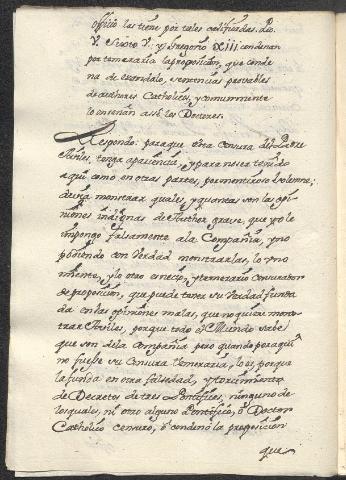 officio las tiene por tales calificadas. Pio
V. Sixto V. y Gregorio XIII condenan
por temeraria la proposicion, que conde
na de escandalo, sentencias provables
de authores Catholicos, y comunmente
lo enseñan assi los Doctores.
Respondo: para que esta censura del Padre
Asiles, tenga apariencia, y para no ser tenido
aqui como en otras partes, por mentiroso solemne;
devia monstrar quales, y quantas son las opi
niones indignas de Author grave, que yo le
impongo falsamente a la Compañia, y no
pudiendo con verdad monstrarlas, lo uno
miente, y lo otro es necio, y temerario censurador
de proposicion, que puede tener su verdad funda
da en las opiniones malas, que no quiere mons-
trar Asiles, porque todo el Mundo sabe
que son de la Compañia pero quando por aqui
no fuesse su Censura temeraria, lo es, porque
la funda en otra falsedad, y torcimiento
de Decretos de tres Pontifices, ninguno de
los quales, ni otro alguno Pontifice, o Doctor
Catholico censuro, o condenò la proposicion
que